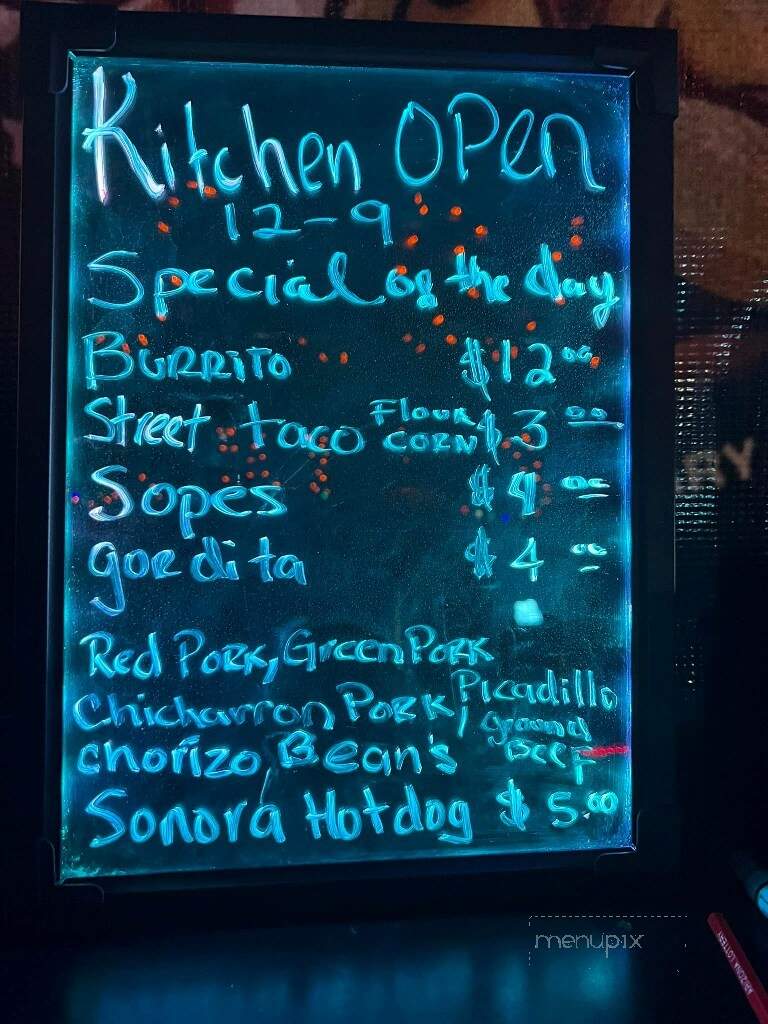 Kitchen OPen
12-9
Special of the day
BURRiTO $12.00
Street taco FlOUR CORN $3.00
Sopes $4.00
gordita $4.00
Red PORK, Green PORK
Chicharron PORK, Picadillo
ground BEEF
chorizo, Bean's
Sonora Hotdog $5.00
RY
menupix
ARIZONA LOTTERY